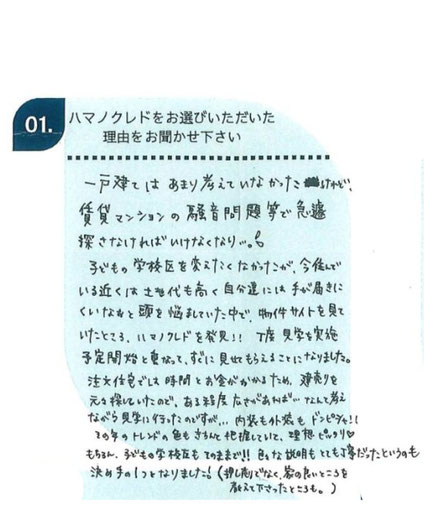 01.
ハマノクレドをお選びいただいた
理由をお聞かせ下さい
一戸建てはあまり考えていなかったけれど、
賃貸マンションの騒音問題等で急遽
探さなければいけなくなり…。
子どもの学校区を変えたくなかったが、今住んで
いる近くは土地代も高く自分達には手が届きに
くいなぁと頭を悩ましていた中で、物件サイトを見て
いたところ、ハマノクレドを発見!! 丁度見学を実施
予定開始と重なって、すぐに見せてもらえることになりました。
注文住宅では時間とお金がかかるため、建売りを
元々探していたので、ある程度広さがあれば…なんて考え
ながら見学に行ったのですが…内装も外装もドンピシャ!!
その年のトレンドの色もきちんと把握していて、理想ピッタリ♡
もちろん、子どもの学校区もそのままで!! 色々な説明もとても丁寧だったというのも
決め手の1つとなりました!(押し売りでなく、家の良いところを
教えて下さったところも。)